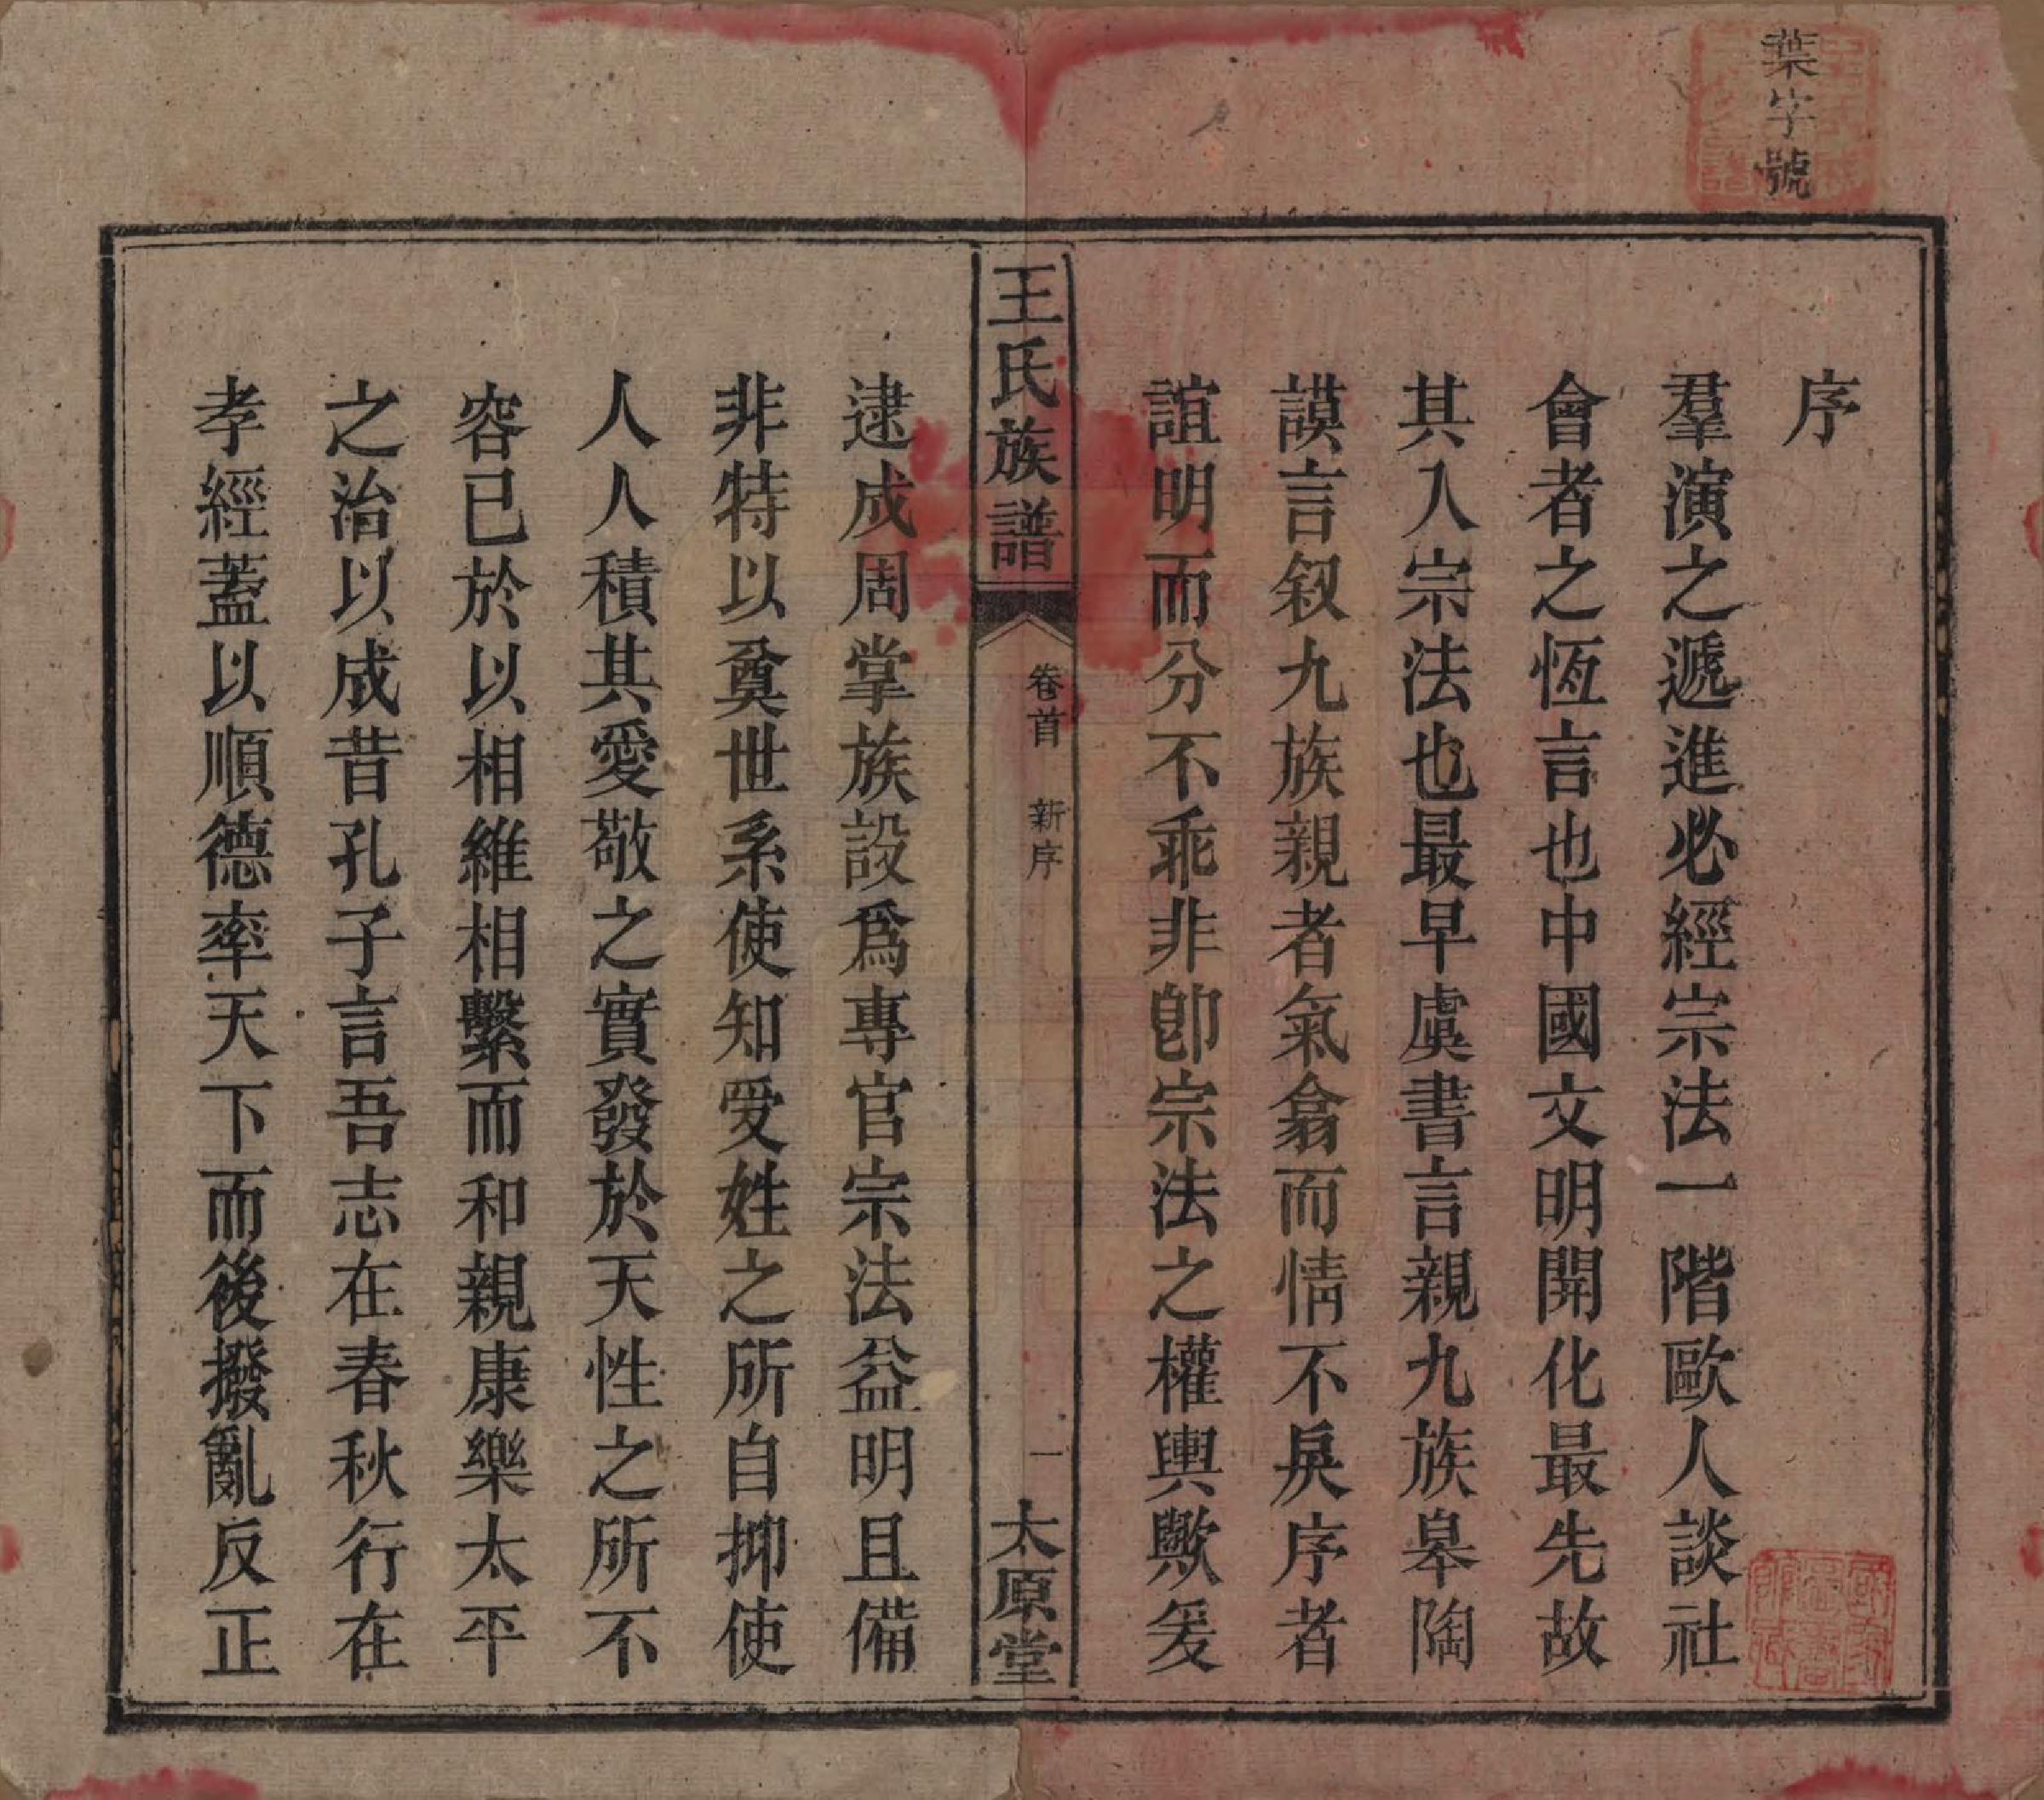 葉字號
序
羣演之遞進必經宗法一階歐人談社
會者之恆言也中國文明開化最先故
其入宗法也最早虞書言親九族皋陶
謨言叙九族親者氣翕而情不戾序者
誼明而分不乖非卽宗法之權輿歟爰
王氏族譜
卷首 新序
一
太原堂
逮成周掌族設爲專官宗法益明且備
非特以奠世系使知受姓之所自抑使
人人積其愛敬之實發於天性之所不
容已於以相維相繫而和親康樂太平
之治以成昔孔子言吾志在春秋行在
孝經蓋以順德率天下而後撥亂反正